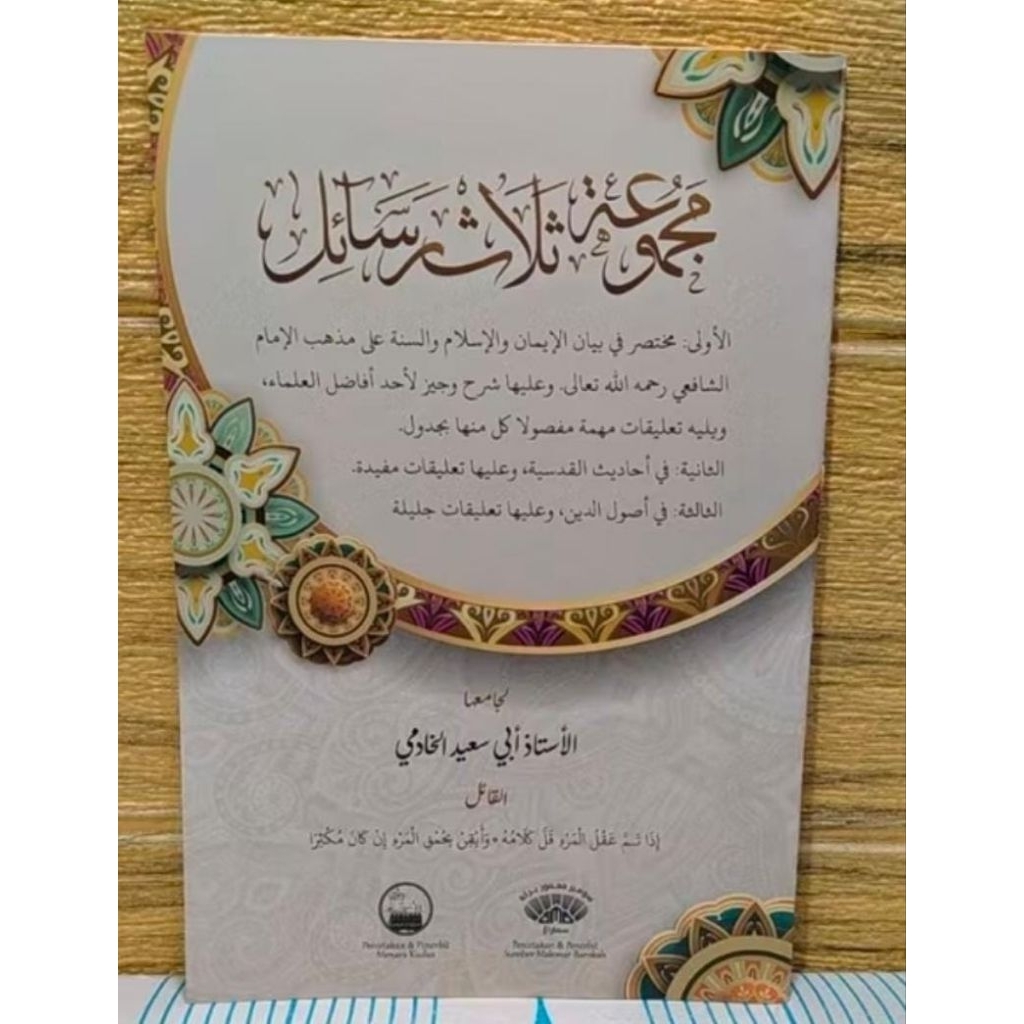 مَجْمُوعَة ثَلَاث رَسَائِل
الأولى: مختصر في بيان الإيمان والإسلام والسنة على مذهب الإمام
الشافعي رحمه الله تعالى. وعليها شرح وجيز لأحد أفاضل العلماء،
ويليه تعليقات مهمة مفصولا كل منها بجدول.
الثانية: في أحاديث القدسية، وعليها تعليقات مفيدة.
الثالثة: في أصول الدين، وعليها تعليقات جليلة
لجامعها
الأستاذ أبي سعيد الخادمي
القائل
إِذَا تَمَّ عَقْلُ الْمَرْءِ قَلَّ كَلَامُهُ * وَأَيْقِنْ بِحُمْقِ الْمَرْءِ إِنْ كَانَ مُكْثِرًا
Percetakan & Penerbit
Menara Kudus
Percetakan & Penerbit
Sumber Makmur Barokah